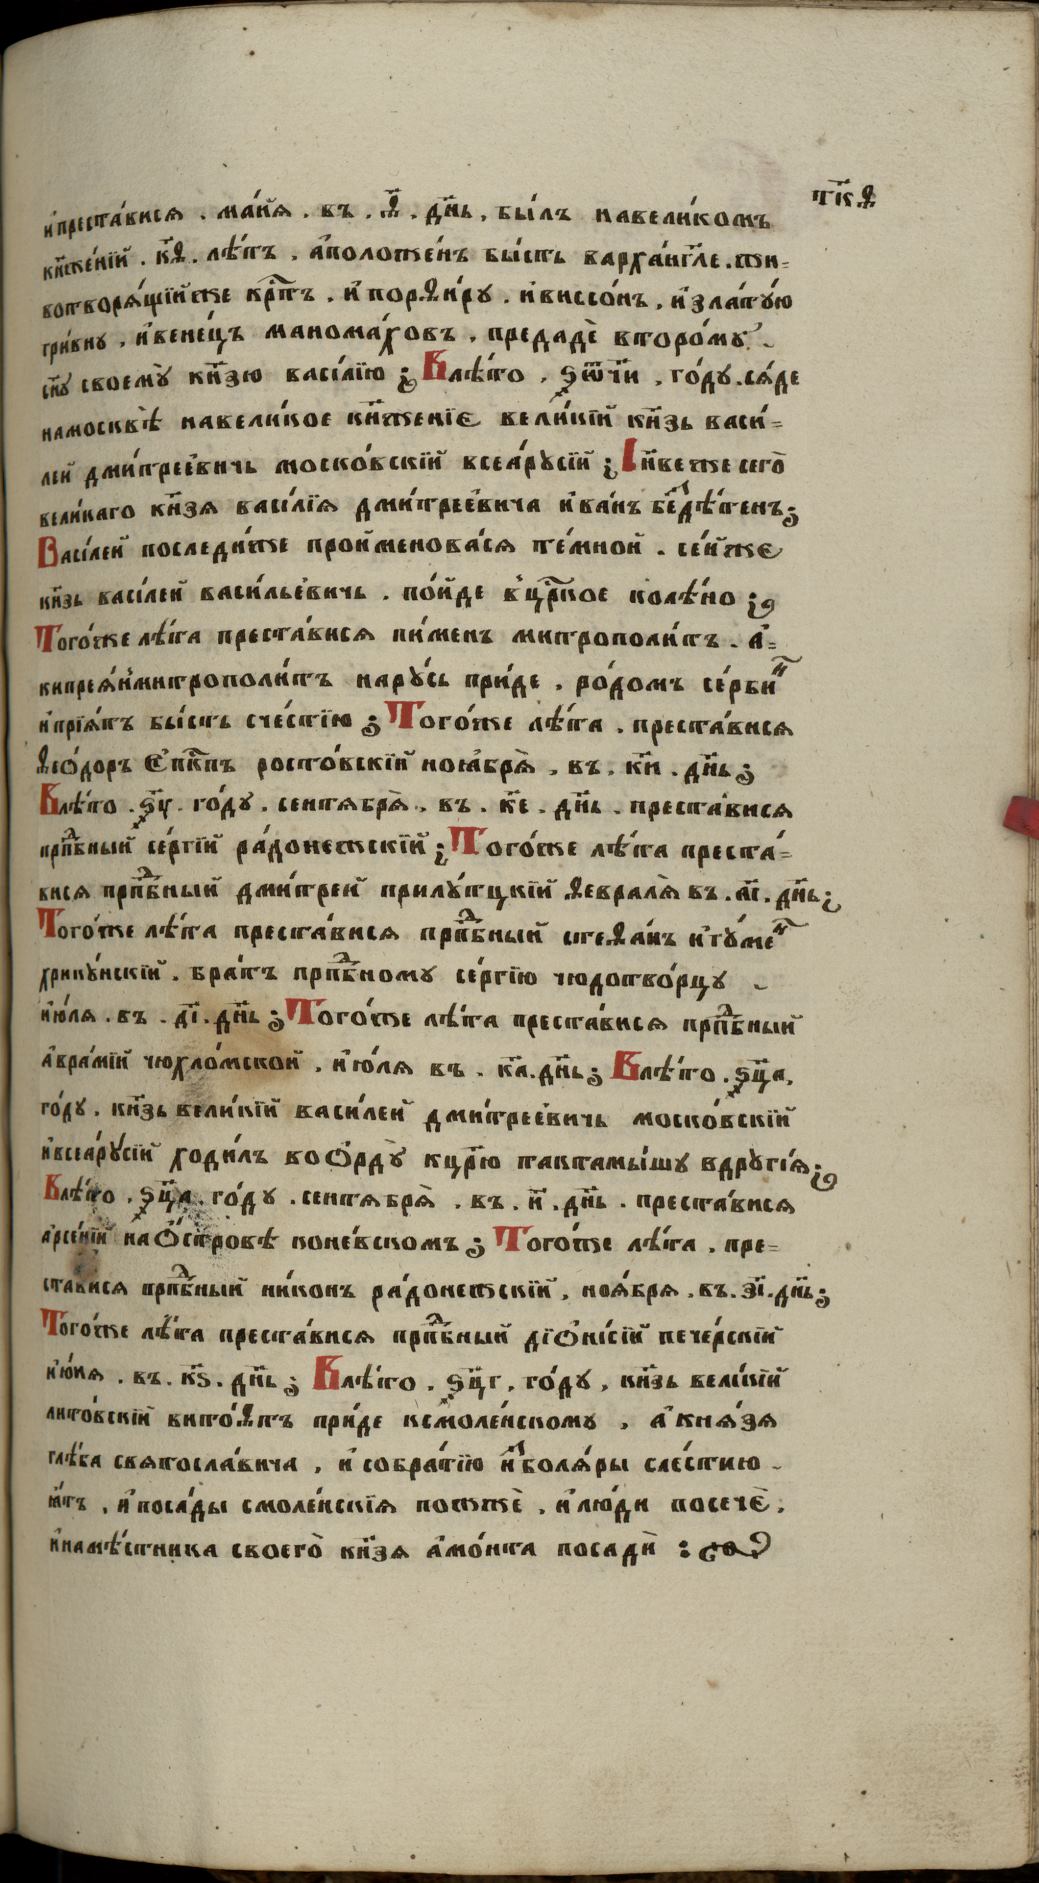 т҃кѳ
и҆преста́вися . ма́йя . въ . ѳ҃ . дн҃ь . бы́лъ навели́комъ
кн҃же́нїй . к҃ѳ . лѣ́тъ . а҆положе́нъ бы́сть вархáнг҃ле . жи-
вотворя́щїйже кр҃тъ . и҆порѳи́ру . и҆виссо́нъ . и҆злату́ю
гри́вну . и҆вене́цъ манома́ховъ . предадѐ второ́му
сн҃у своемꙋ̀ кн҃зю васі́лїю ; Влѣ́то . ѕ҃ѿч҃и . го́ду . ся́де
намосквѣ̀ навели́кое кн҃женїе вели́кїй кн҃зь васи́-
лей дми́трее҆вичь моско́вскїй всеа́рꙋсїй ; І҆н҃веже сегѡ̀
вели́каго кн҃зя васі́лїя дми́трее҆вича и҆ва́нъ безⷣдѣ́тенъ ;
Васі́лей последни́же пройменова́ся те́мной . се́йже
кн҃зь васі́лей васи́лье҆вичь . по́йде в̾цр҃кое колѣ́но ;
Тогѡ́же лѣ́та преста́вися пи́менъ митрополи́тъ . а҆-
кипрея́н̾митрополи́тъ нарꙋ́сь прїи́де . ро́домъ се́рбинⷩ
и҆прїя́тъ бы́сть сче́стїю ; Тогѡ́же лѣ́та . преста́вися
Ѳео́доръ Є҆пк҃пъ росто́вскїй ноꙗ҆брѧ̀ . въ . к҃и . дн҃ь ;
Влѣ́то . ѕ҃ц . го́ду . сентября̀ . въ . к҃е . дн҃ь . преста́вися
прпⷣбный се́ргїй ра́донежскїй ; Тогѡ́же лѣ́та преста́-
вися прпⷣбный дми́трей прилꙋ́тцкїй ѳевраля̀ въ . а҃і . дн҃ь ;
Тогѡ́же лѣ́та преста́вися прпⷣбный стеѳа́нъ и҆гꙋ́менⷩ
хрипꙋ́нскїй . бра́тъ прпⷣбному се́ргїю чюдотво́рцу
и҆ю́ля . въ . д҃і . дн҃ь ; Тогѡ́же лѣ́та преста́вися прпⷣбный
а҆вра́мїй чюхло́мской . и҆ю́ля въ . к҃а . дн҃ь ; Влѣ́то . ѕ҃ца .
го́ду . кн҃зь вели́кїй васи́лей дми́трее҆вичь моско́вскїй
и҆всеа́рꙋсїй ходи́лъ воѻ҆рдꙋ̀ кцр҃ю тактамы́шу вдрꙋгі́я ;
Влѣ́то . ѕ҃ца . го́ду . сентября̀ . въ . и҃ . дн҃ь . преста́вися
а҆рсе́нїй наѻ҆́стровѣ коне́вскомъ ; Тогѡ́же лѣ́та . пре-
стави́ся прпⷣбный ни́конъ ра́донежскїй . ноя́бря . въ . з҃і . дн҃ь ;
Тогѡ́же лѣ́та преста́вися прпⷣбный дїѻни́сїй пече́рскїй
и҆ю́ня . въ . к҃ѕ . дн҃ь ; Влѣ́то . ѕ҃цг . го́ду . кн҃зь вели́кїй
лито́вскїй вито́ѳтъ прїи́де ксмоле́нскому . а҆ кня́зя
глѣ́ба святосла́вича . и҆ собра́тїю и҆ боля́ры сле́стию
и҆́тъ . и҆поса́ды смоле́нскїя пожжѐ . и҆лю́ди посечѐ ;
и҆намѣ́стника своегѡ̀ кн҃зя а҆мо́нта посадѝ :